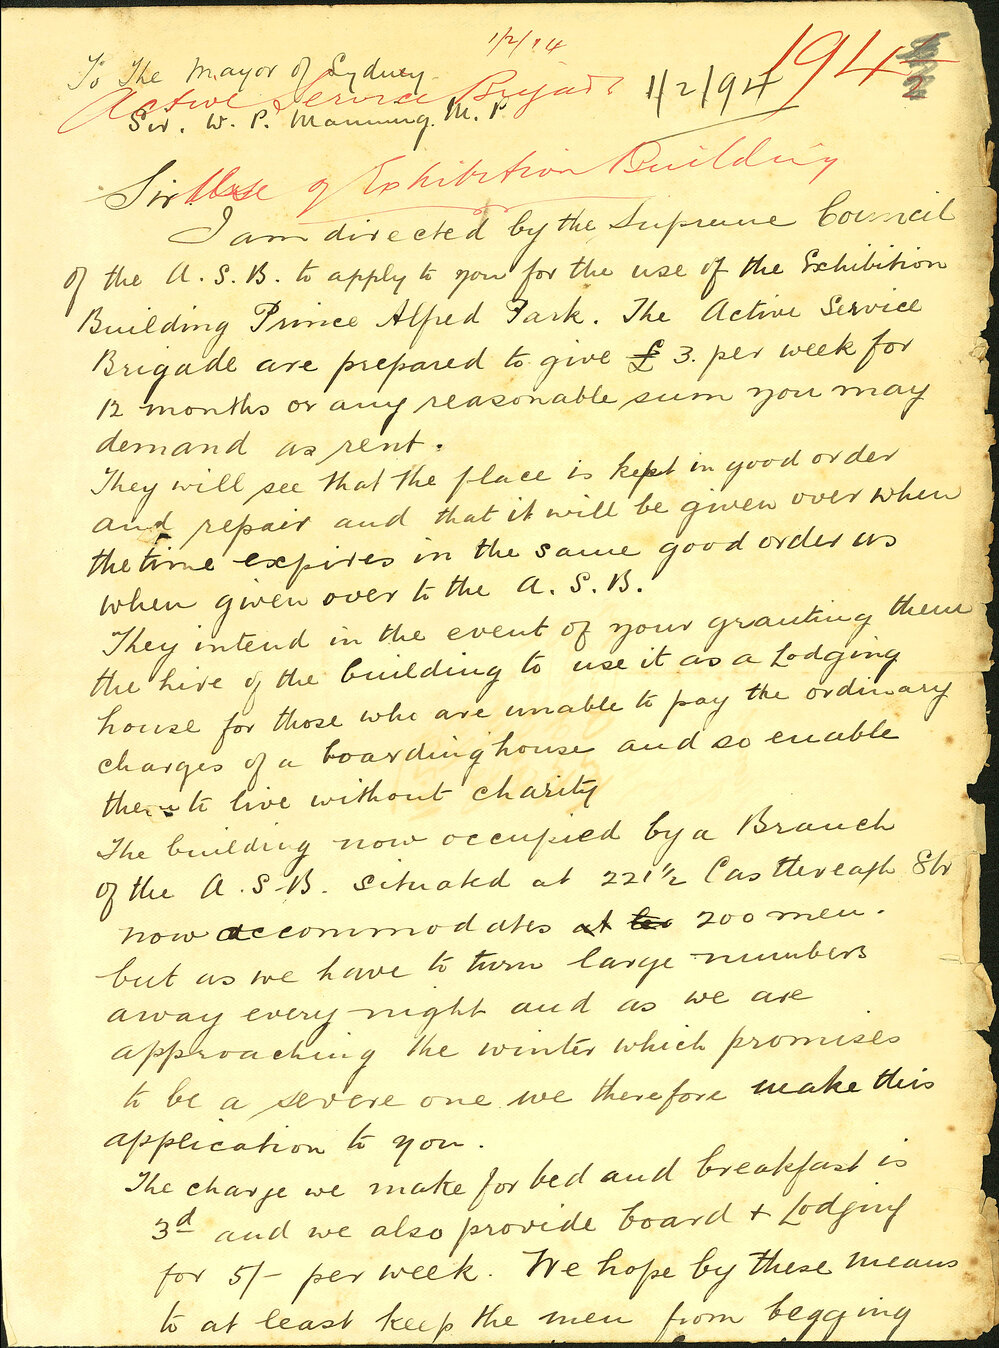 1/2/94
To The Mayor of Sydney
Active Service Brigade
1/2/94
Sir. W. P. Manning. M. P
Sir.
Use of Exhibition Building
I am directed by the Supreme Council
of the A. S. B. to apply to you for the use of the Exhibition
Building Prince Alfred Park. The Active Service
Brigade are prepared to give £ 3. per week for
12 months or any reasonable sum you may
demand as rent.
They will see that the place is kept in good order
and repair and that it will be given over when
the time expires in the same good order as
when given over to the A. S. B.
They intend in the event of your granting them
the hire of the building to use it as a Lodging
house for those who are unable to pay the ordinary
charges of a boarding house and so enable
them to live without charity
The building now occupied by a Branch
of the A. S. B. situated at 221½ Castlereagh Str
now accommodates 200 men.
but as we have to turn large numbers
away every night and as we are
approaching the winter which promises
to be a severe one we therefore make this
application to you.
The charge we make for bed and breakfast is
3d and we also provide board + Lodging
for 5/- per week. We hope by these means
to at least keep the men from begging